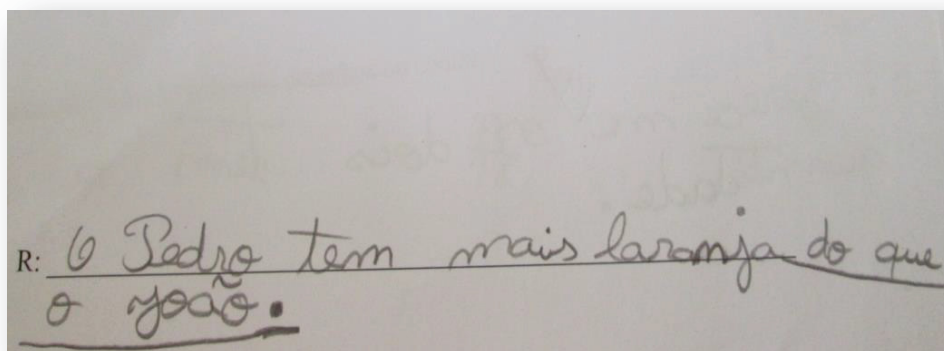 R: O Pedro tem mais laranja do que
o João.